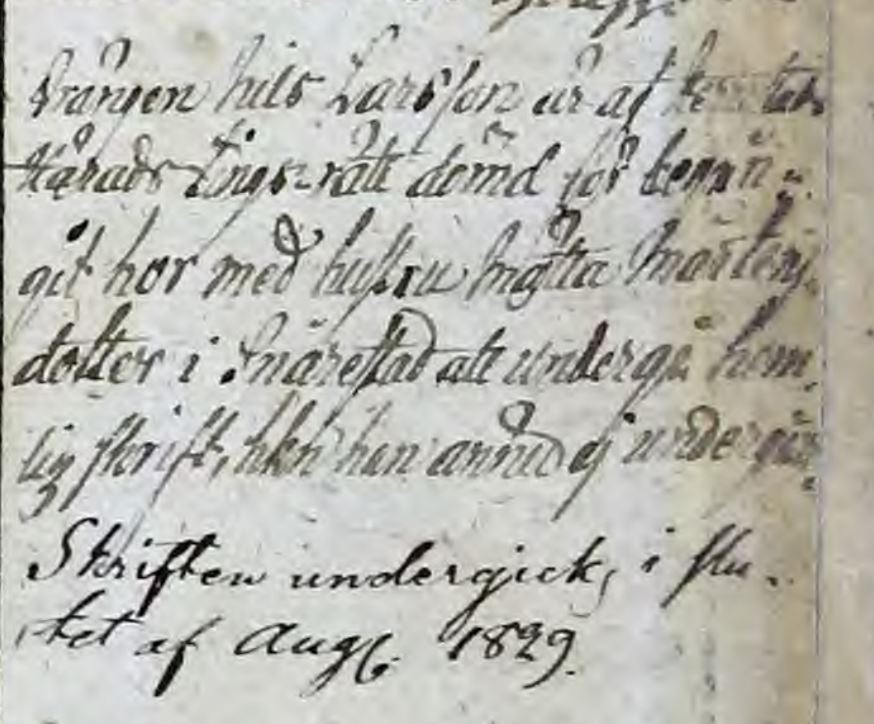 Drängen Nils Larsson är af
Härads Tings-rätt dömd för begån-
git hor med hustru Mätta Mårtens-
dotter i Snårestad att undergå hem-
lig skrift, hkn han ännu ej undergåt
Skriften undergick, i slu-
tet af Aug. 1829.